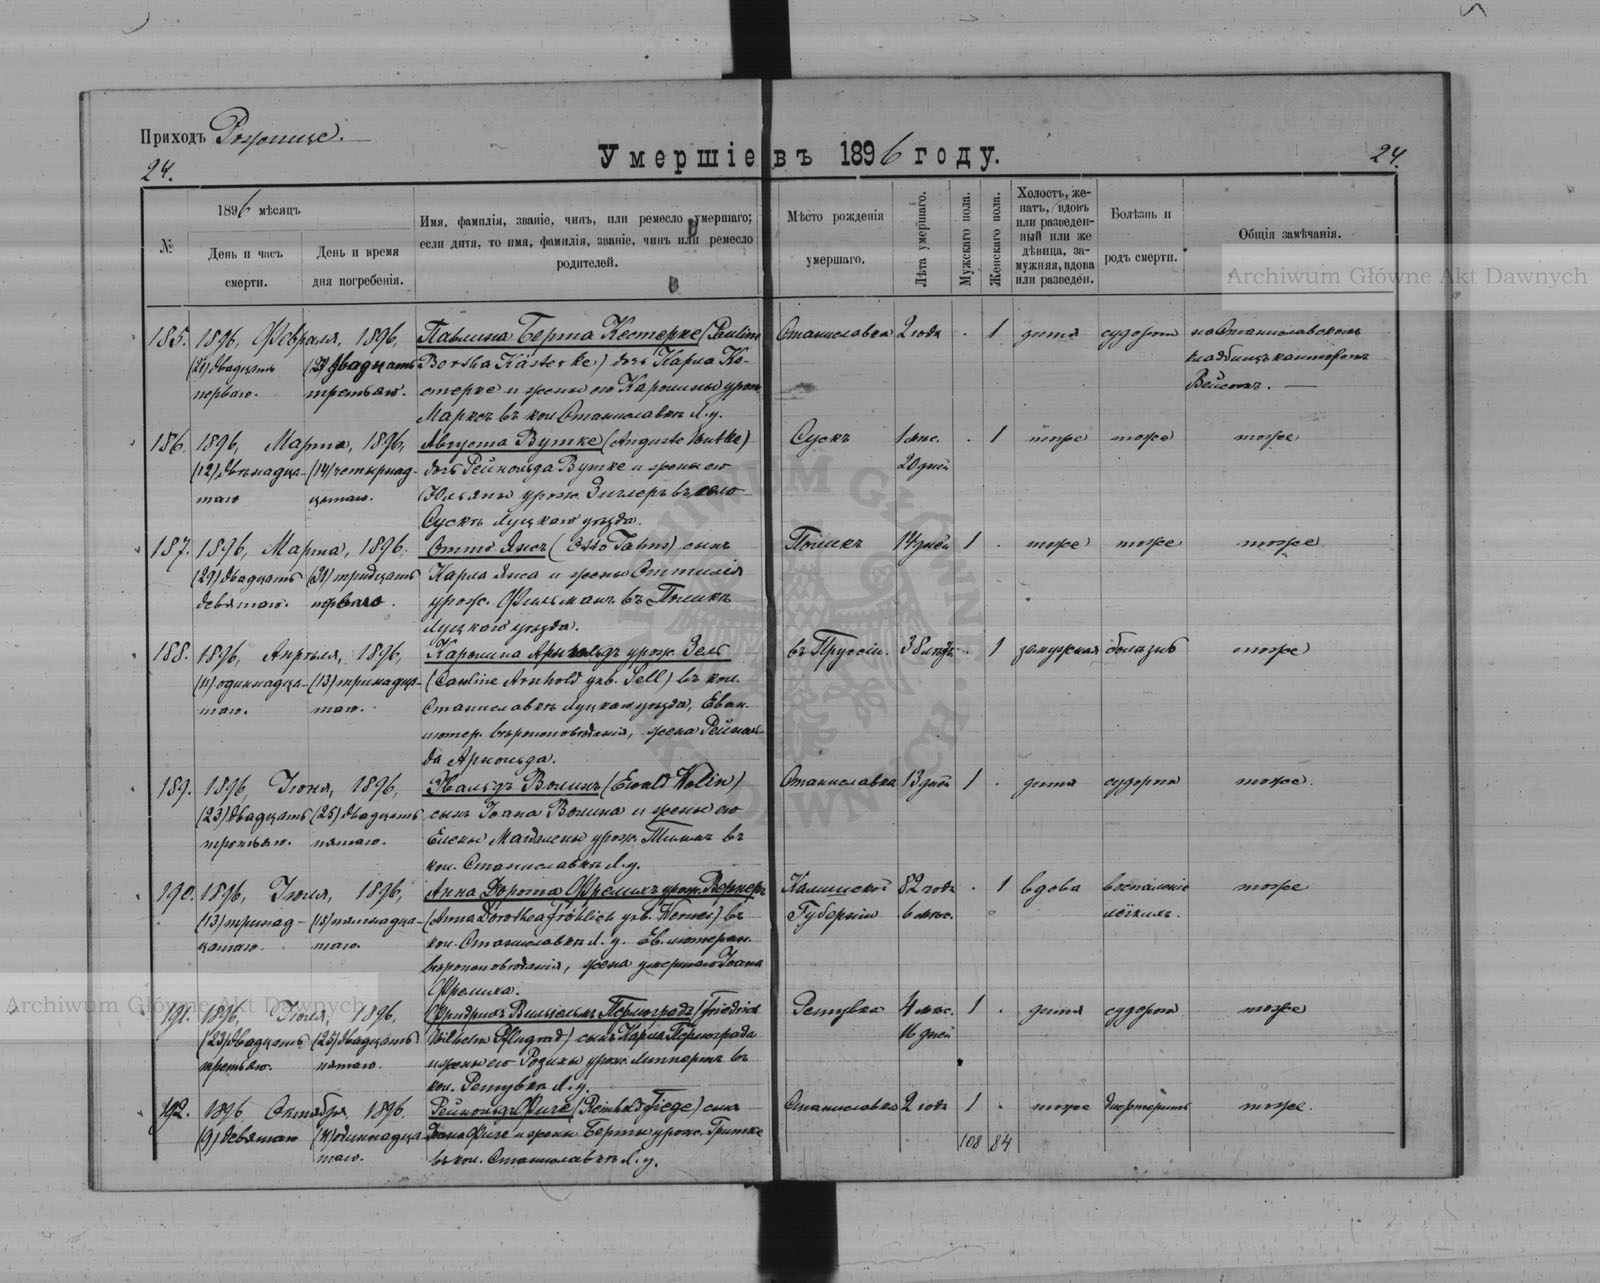 Приходъ Рожище.
24.
Умершіе въ 1896 году.
24.
№
1896 мѣсяцъ
День и часъ смерти.
День и время дня погребенія.
Имя, фамилія, званіе, чинъ, или ремесло умершаго;
если дитя, то имя, фамилія, званіе, чинъ или ремесло
родителей.
Мѣсто рожденія
умершаго.
Лѣта умершаго.
Мужскаго пола.
Женскаго пола.
Холостъ, же-
натъ, вдовъ
или разведен-
ный или же
дѣвица, за-
мужняя, вдова
или разведен.
Болѣзнь и
родъ смерти.
Общія замѣчанія.
Archiwum Główne Akt Dawnych
185. 1896, Февраля, 1896, Павлина Берта Кестерке (Pauline Станиславка 2 года . 1 дитя судорги на Станиславскомъ
(21) двадцать (23) двадцать Bertha Kästerke) дочь Карла Ке-
перваго. третьяго. стерке и жены его Каролины урож.
Вейсомъ.
Марксъ въ кол. Станиславкѣ Л. у.
186. 1896, Марта, 1896, Августа Вутке (Auguste Wutke) Сускъ 1 мѣс. . 1 тоже тоже тоже
(12) двѣнадца- (14) четырнад- дочь Рейнольда Вутке и жены его 20 дней
таго цатаго. Юльяны урож. Зиглеръ въ село
Сускъ Луцкаго уѣзда.
187. 1896, Марта, 1896. Отто Янсъ (Otto Jahns) сынъ 14 дней 1 . тоже тоже тоже
(29) двадцать (31) тридцать Карла Янса и жены Оттилія
девятаго. перваго. урож. Фильманъ въ
Луцкаго уѣзда.
188. 1896, Апрѣля, 1896, Каролина Арнгольдъ урож. Зель въ Пруссіи. 38 лѣтъ . 1 замужняя болѣзнь тоже
(11) одиннадца- (13) тринадца- (Caroline Arnhold geb. Sell) въ кол.
таго. таго. Станиславкѣ Луцкаго уѣзда, Еван.
лютер. вѣроисповѣданія, жена Рейноль-
да Арнольда.
189. 1896, Іюня, 1896, Эвальдъ Волинъ (Ewald Wolin) Станиславка 13 дней 1 . дитя судорги тоже.
(23) двадцать (25) двадцать сынъ Іоана Волина и жены его
третьяго. пятаго. Елены Магдалены урож. Тиммъ въ
кол. Станиславкѣ Л. у.
190. 1896, Іюля, 1896, Анна Дорота Фрелихъ урож. Вернеръ Калишской 82 года . 1 вдова воспаленіе тоже
(13) тринад- (15) пятнадца- (Anna Dorothea Fröhlich geb. Werner) въ Губерніи 6 мѣс. лёгкихъ.
цатаго. таго. кол. Станиславкѣ Л. у. Ев. лютеран.
вѣроисповѣданія, жена умершаго Іоана
Фрелиха.
Archiwum Główne Akt Dawnych
191. 1896, Іюля, 1896, Фридрихъ Вильгельмъ (Friedrich 4 мѣс. 1 . дитя судорги тоже
(23) двадцать (25) двадцать Wilhelm Pflugrad) сынъ Карла 16 дней
третьяго. пятаго. и жены его Розалы урож. Липпертъ въ
кол. Л. у.
192. 1896 Октября 1896. Рейнольдъ Фиге (Reinhold Fiege) сынъ Станиславка 2 года 1 . тоже дифтеритъ тоже.
(9) девятаго (11) одиннадца- Іоана Фиге и жены Берты урож. Гритке 108 84
таго. въ кол. Станиславкѣ Л. у.